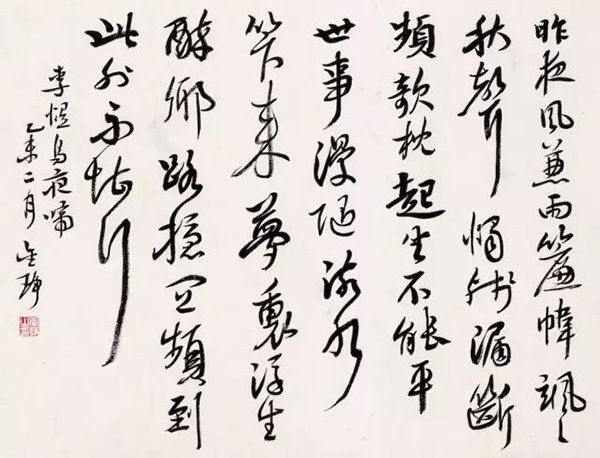 昨夜風兼雨簾幃颯〻
秋聲燭殘漏斷
頻欹枕起坐不能平
世事漫随流水
笇来夢裏浮生
醉鄉路穩宜頻到
此外不堪行
李煜烏夜啼
乙未二月